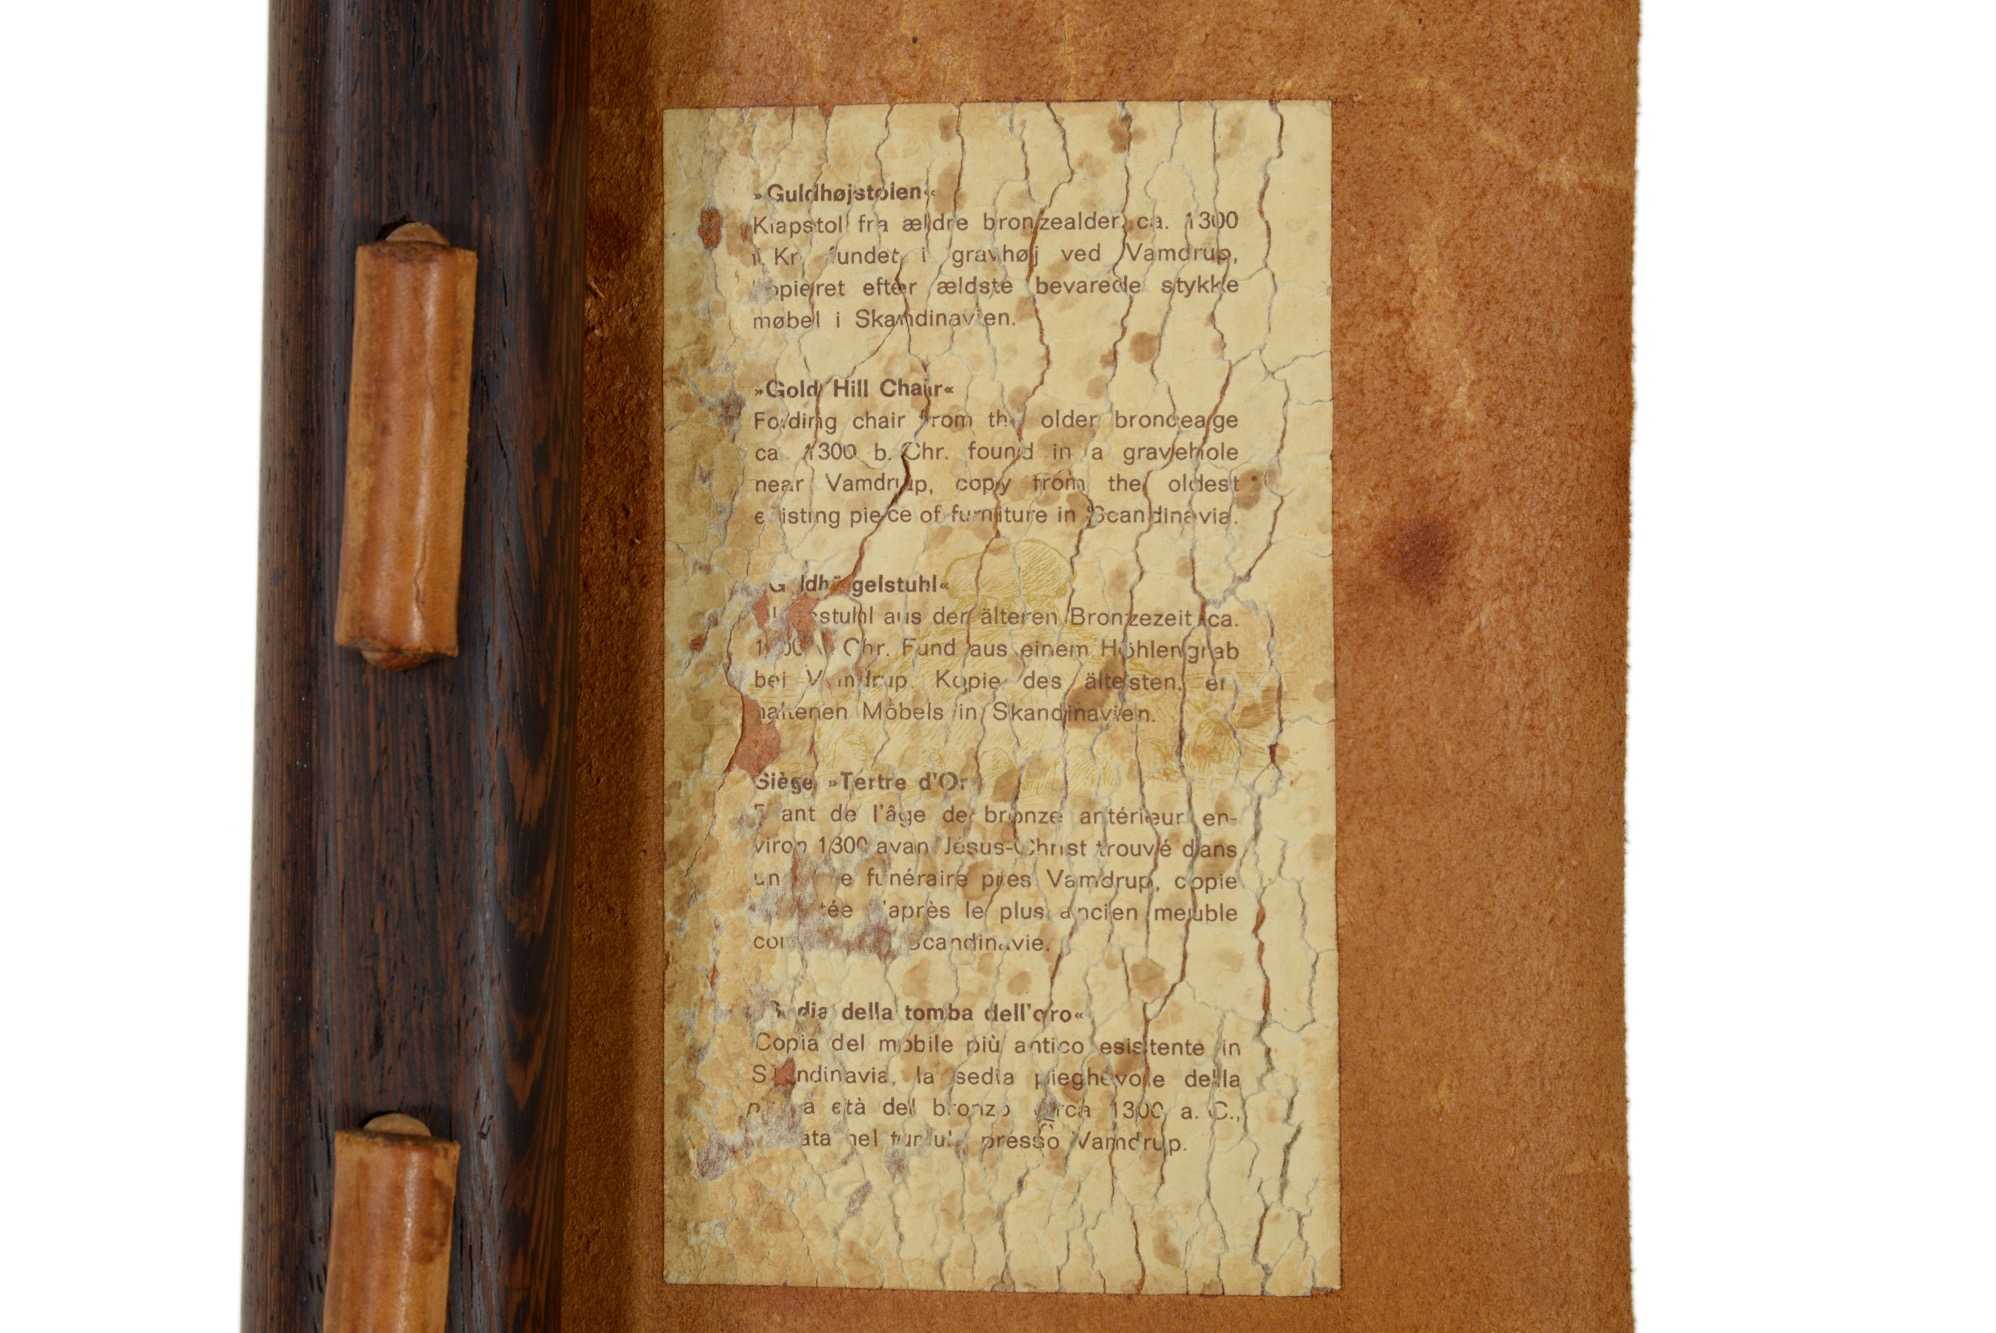 »Guldhøjstolen«
Klapstol fra ældre bronzealder, ca. 1300
f. Kr. fundet i gravhøj ved Vamdrup,
kopieret efter ældste bevarede stykke
møbel i Skandinavien.
»Gold Hill Chair«
Folding chair from the older bronceage
ca. 1300 b. Chr. found in a gravehole
near Vamdrup, copy from the oldest
existing piece of furniture in Scandinavia.
»Goldhügelstuhl«
aus der älteren Bronzezeit, ca.
1300 v. Chr. Fund aus einem Höhlengrab
bei Vamdrup. Kopie des ältesten, er-
haltenen Möbels in Skandinavien.
Siège »Tertre d'Or«
de l'âge de bronze antérieur en-
viron 1300 avant Jésus-Christ trouvé dans
un funéraire près Vamdrup, copie
d'après le plus ancien meuble
Scandinavie.
»Sedia della tomba dell'oro«
Copia del mobile più antico esistente in
Skandinavia, la sedia pieghevole della
prima età del bronzo circa 1300 a. C.,
nel tumulo presso Vamdrup.